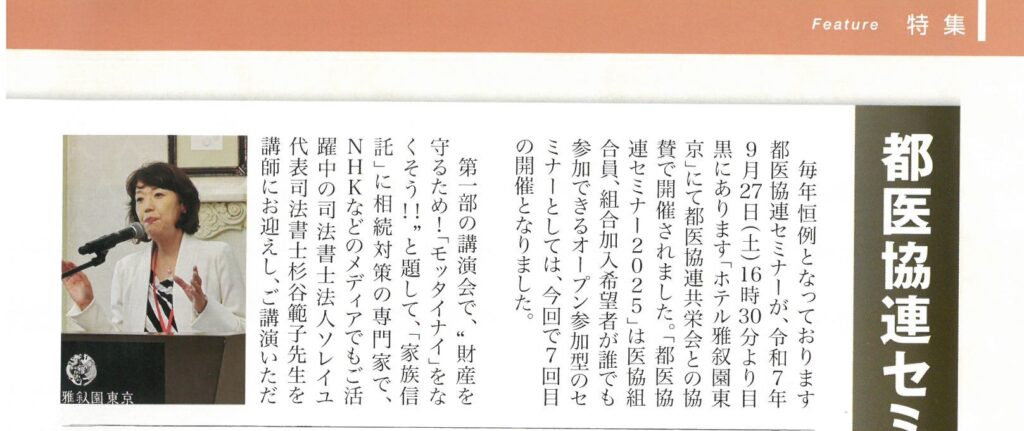 Feature 特集
都医協連セミ
毎年恒例となっております
都医協連セミナーが、令和7年
9月27日(土)16時30分より目
黒にあります「ホテル雅叙園東
京」にて都医協連共栄会との協
賛で開催されました。「都医協
連セミナー2025」は医協組
合員、組合加入希望者が誰でも
参加できるオープン参加型のセ
ミナーとしては、今回で7回目
の開催となりました。
第一部の講演会で、“財産を
守るため!「モッタイナイ」をな
くそう!!”と題して、「家族信
託」に相続対策の専門家で、
NHKなどのメディアでもご活
躍中の司法書士法人ソレイユ
代表司法書士杉谷範子先生を
講師にお迎えし、ご講演いただ
雅叙園東京